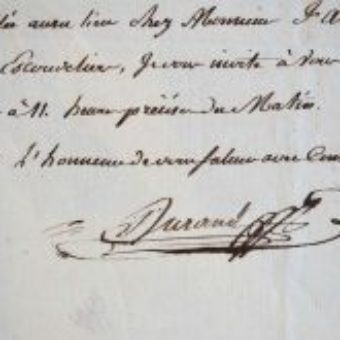 aura lieu chez Monsieur J A
Escudelier, Je vous invite à vous
à 11. heures précises du Matin.
l'honneur de vous saluer avec
Durand